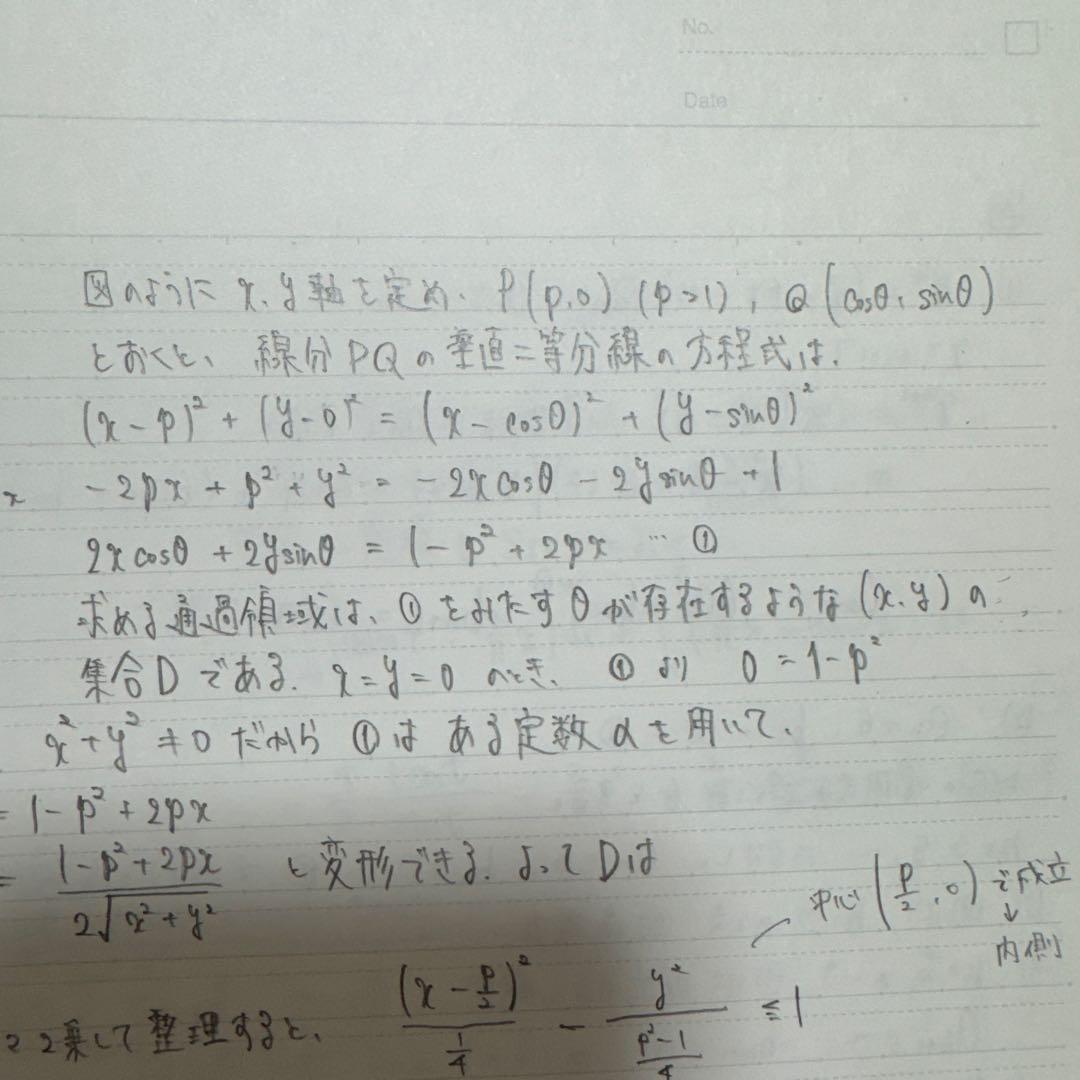 No.
Date
図のように x, y 軸を定め、P(p, 0) (p>1), Q(cosθ, sinθ)
とおくと、線分PQの垂直二等分線の方程式は、
(x-p)²+(y-0)²=(x-cosθ)²+(y-sinθ)²
-2px+p²+y²=-2xcosθ-2ysinθ+1
2xcosθ+2ysinθ=1-p²+2px … ①
求める通過領域は、①をみたすθが存在するような(x, y)の
集合Dである。x=y=0 のとき、①より 0=1-p²
x²+y²≠0 だから ①は ある定数αを用いて、
=1-p²+2px
= (1-p²+2px)/(2√(x²+y²)) と変形できる。よってDは
中心(p/2, 0)で成立
↓
内側
2乗して整理すると、 (x-p/2)²/(1/4) - y²/((p²-1)/4) ≦ 1